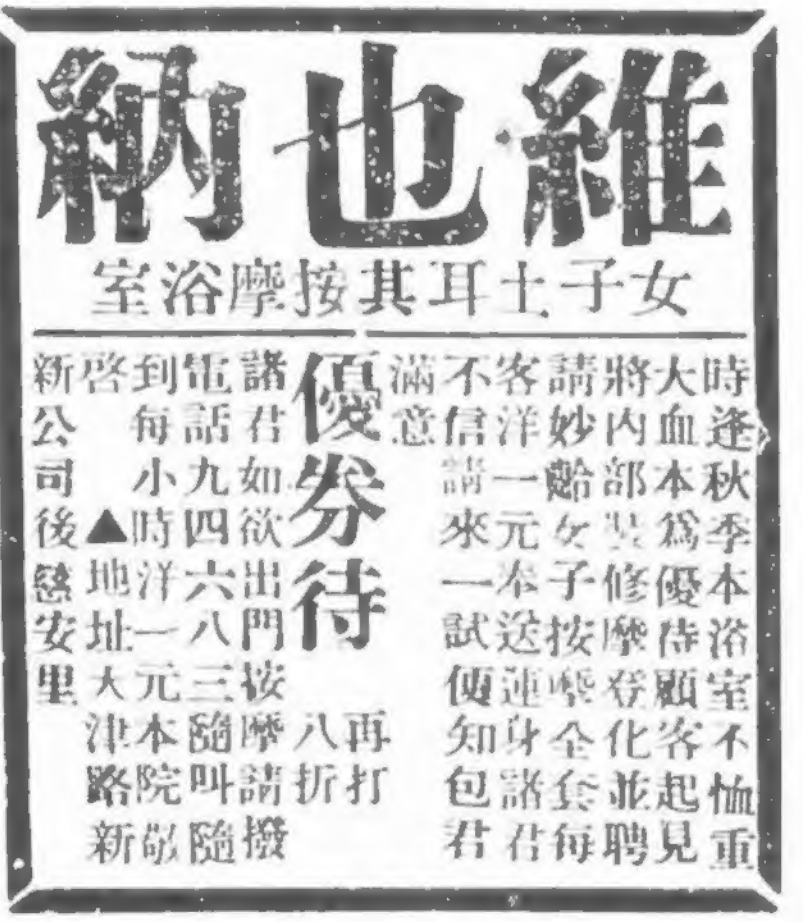 維也納
女子土耳其按摩浴室
時逢秋季本浴室不恤重
大血本爲優待顧客起見
將內部裝修摩登化並聘
請妙齡女子按摩全套每
客洋一元奉送連身諸君
不信請來一試便知包君
滿意
優券待
再打
八折
諸君如欲出門按摩請撥
電話九四六八三隨叫隨
到每小時洋一元本院敬
啓 ▲地址大津路新
新公司後慈安里